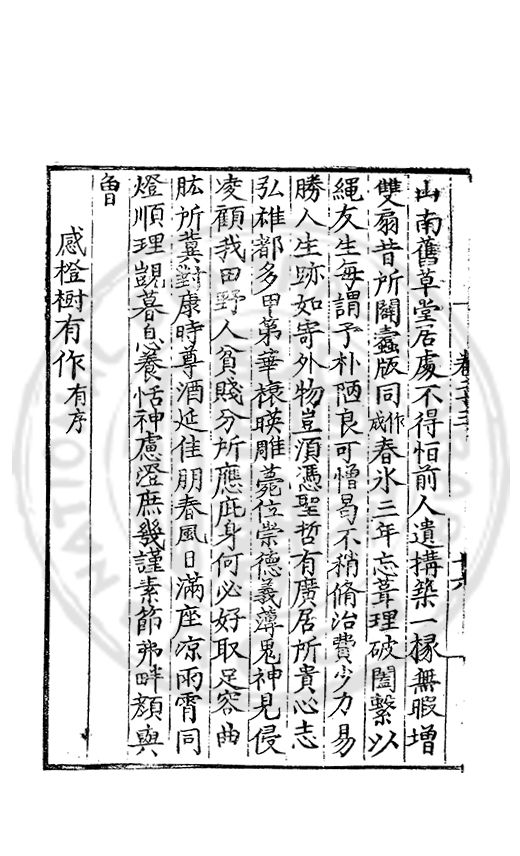 山南舊草堂居處不得恒前人遺搆築一椽無暇增
雙扇昔所闢蠹版同作成春氷三年忘葺理破闔繫以
繩友生每謂予朴陋良可憎曷不稍脩治費少力易
勝人生跡如寄外物豈須憑聖哲有廣居所貴心志
弘雄都多甲第華榱暎雕甍位崇德義薄鬼神見侵
凌顧我田野人貧賤分所應庇身何必好取足容曲
肱所冀對康時尊酒延佳朋春風日滿座凉雨霄同
燈順理覬暮息養恬神慮澄庶幾謹素節弗畔顏與
曾
感橙樹有作有序
卷二十三
十六